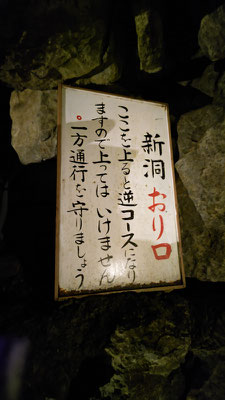 新洞 おり口
ここを上ると逆コースになり
ますので上っては いけません
一方通行を守りましょう